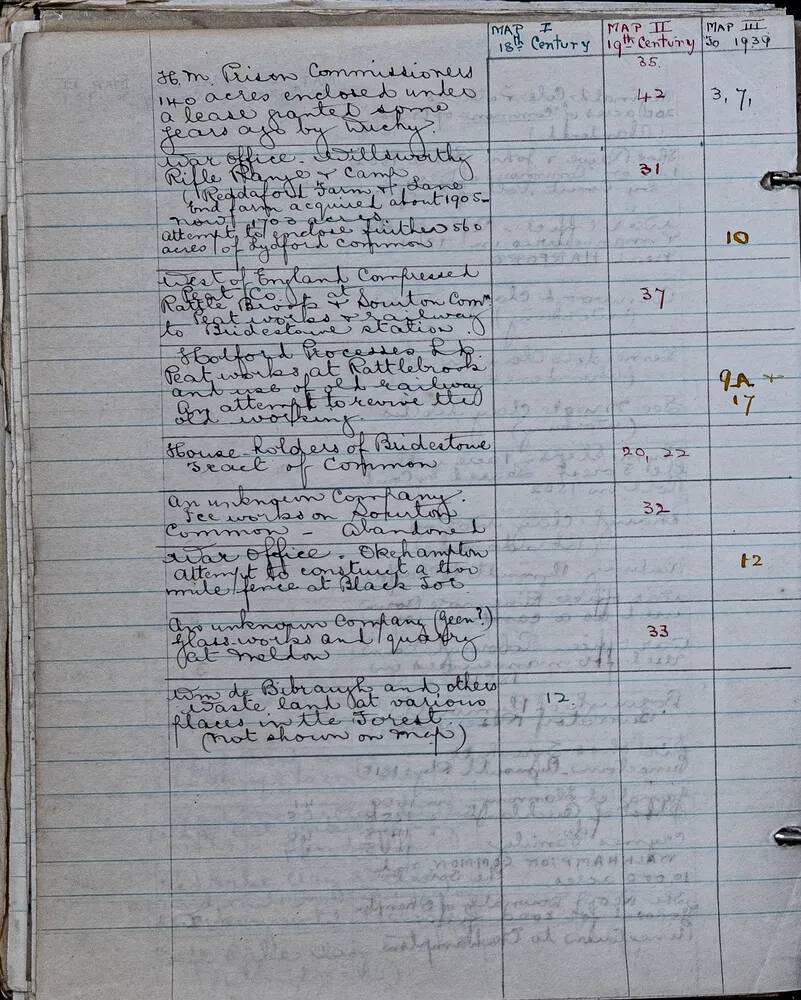 MAP I MAP II MAP III
18th Century 19th Century To 1939
35.
H.M. Prison Commissioners
140 acres enclosed under 42 3, 7,
a lease granted some
years ago by Duchy.
War Office - Willsworthy
Rifle Range & Camp 31
Reddaford Farm & Lane
End farm acquired about 1905-
now 1703 acres.
Attempt to enclose further 560 10
acres of Lydford common
West of England Compressed
Peat Co. at 37
Rattle Brook & Sourton Comn
Peat works & railway
to Bridestowe station.
Holford Processes Ld.
Peat works, at Rattlebrook 9A +
and use of old railway 17
An attempt to revive the
old working.
House-holders of Bridestowe 20, 22
Tract of Common
An unknown Company.
Ice works on Sourton 32
Common - Abandoned
War Office - Okehampton 12
Attempt to construct a two
mile fence at Black Tor.
An unknown Company (Geen?)
Glass-works and quarry 33
at Meldon
Wm de Bibraugh and others 12.
Waste land at various
places in the Forest.
(Not shown on Map)